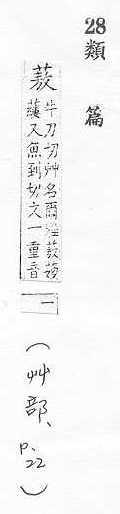 28
類篇
蔜
牛刀切艸名爾雅蔜
又魚到切文一重音
一
(艸部、p.22)